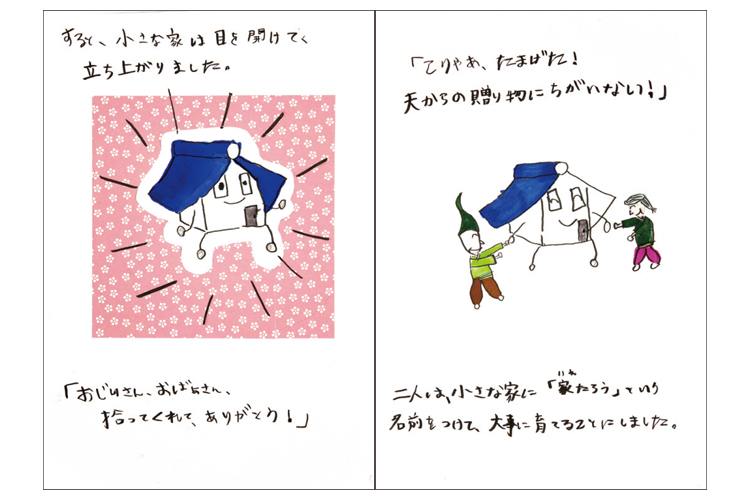 すると、小さな家は目を開けて
立ち上がりました。
「おじいさん、おばあさん、
拾ってくれて、ありがとう！」
「こりゃあ、たまげた！
天からの贈り物にちがいない！」
二人は、小さな家に「家たろう」という
いえ
名前をつけて、大事に育てることにしました。